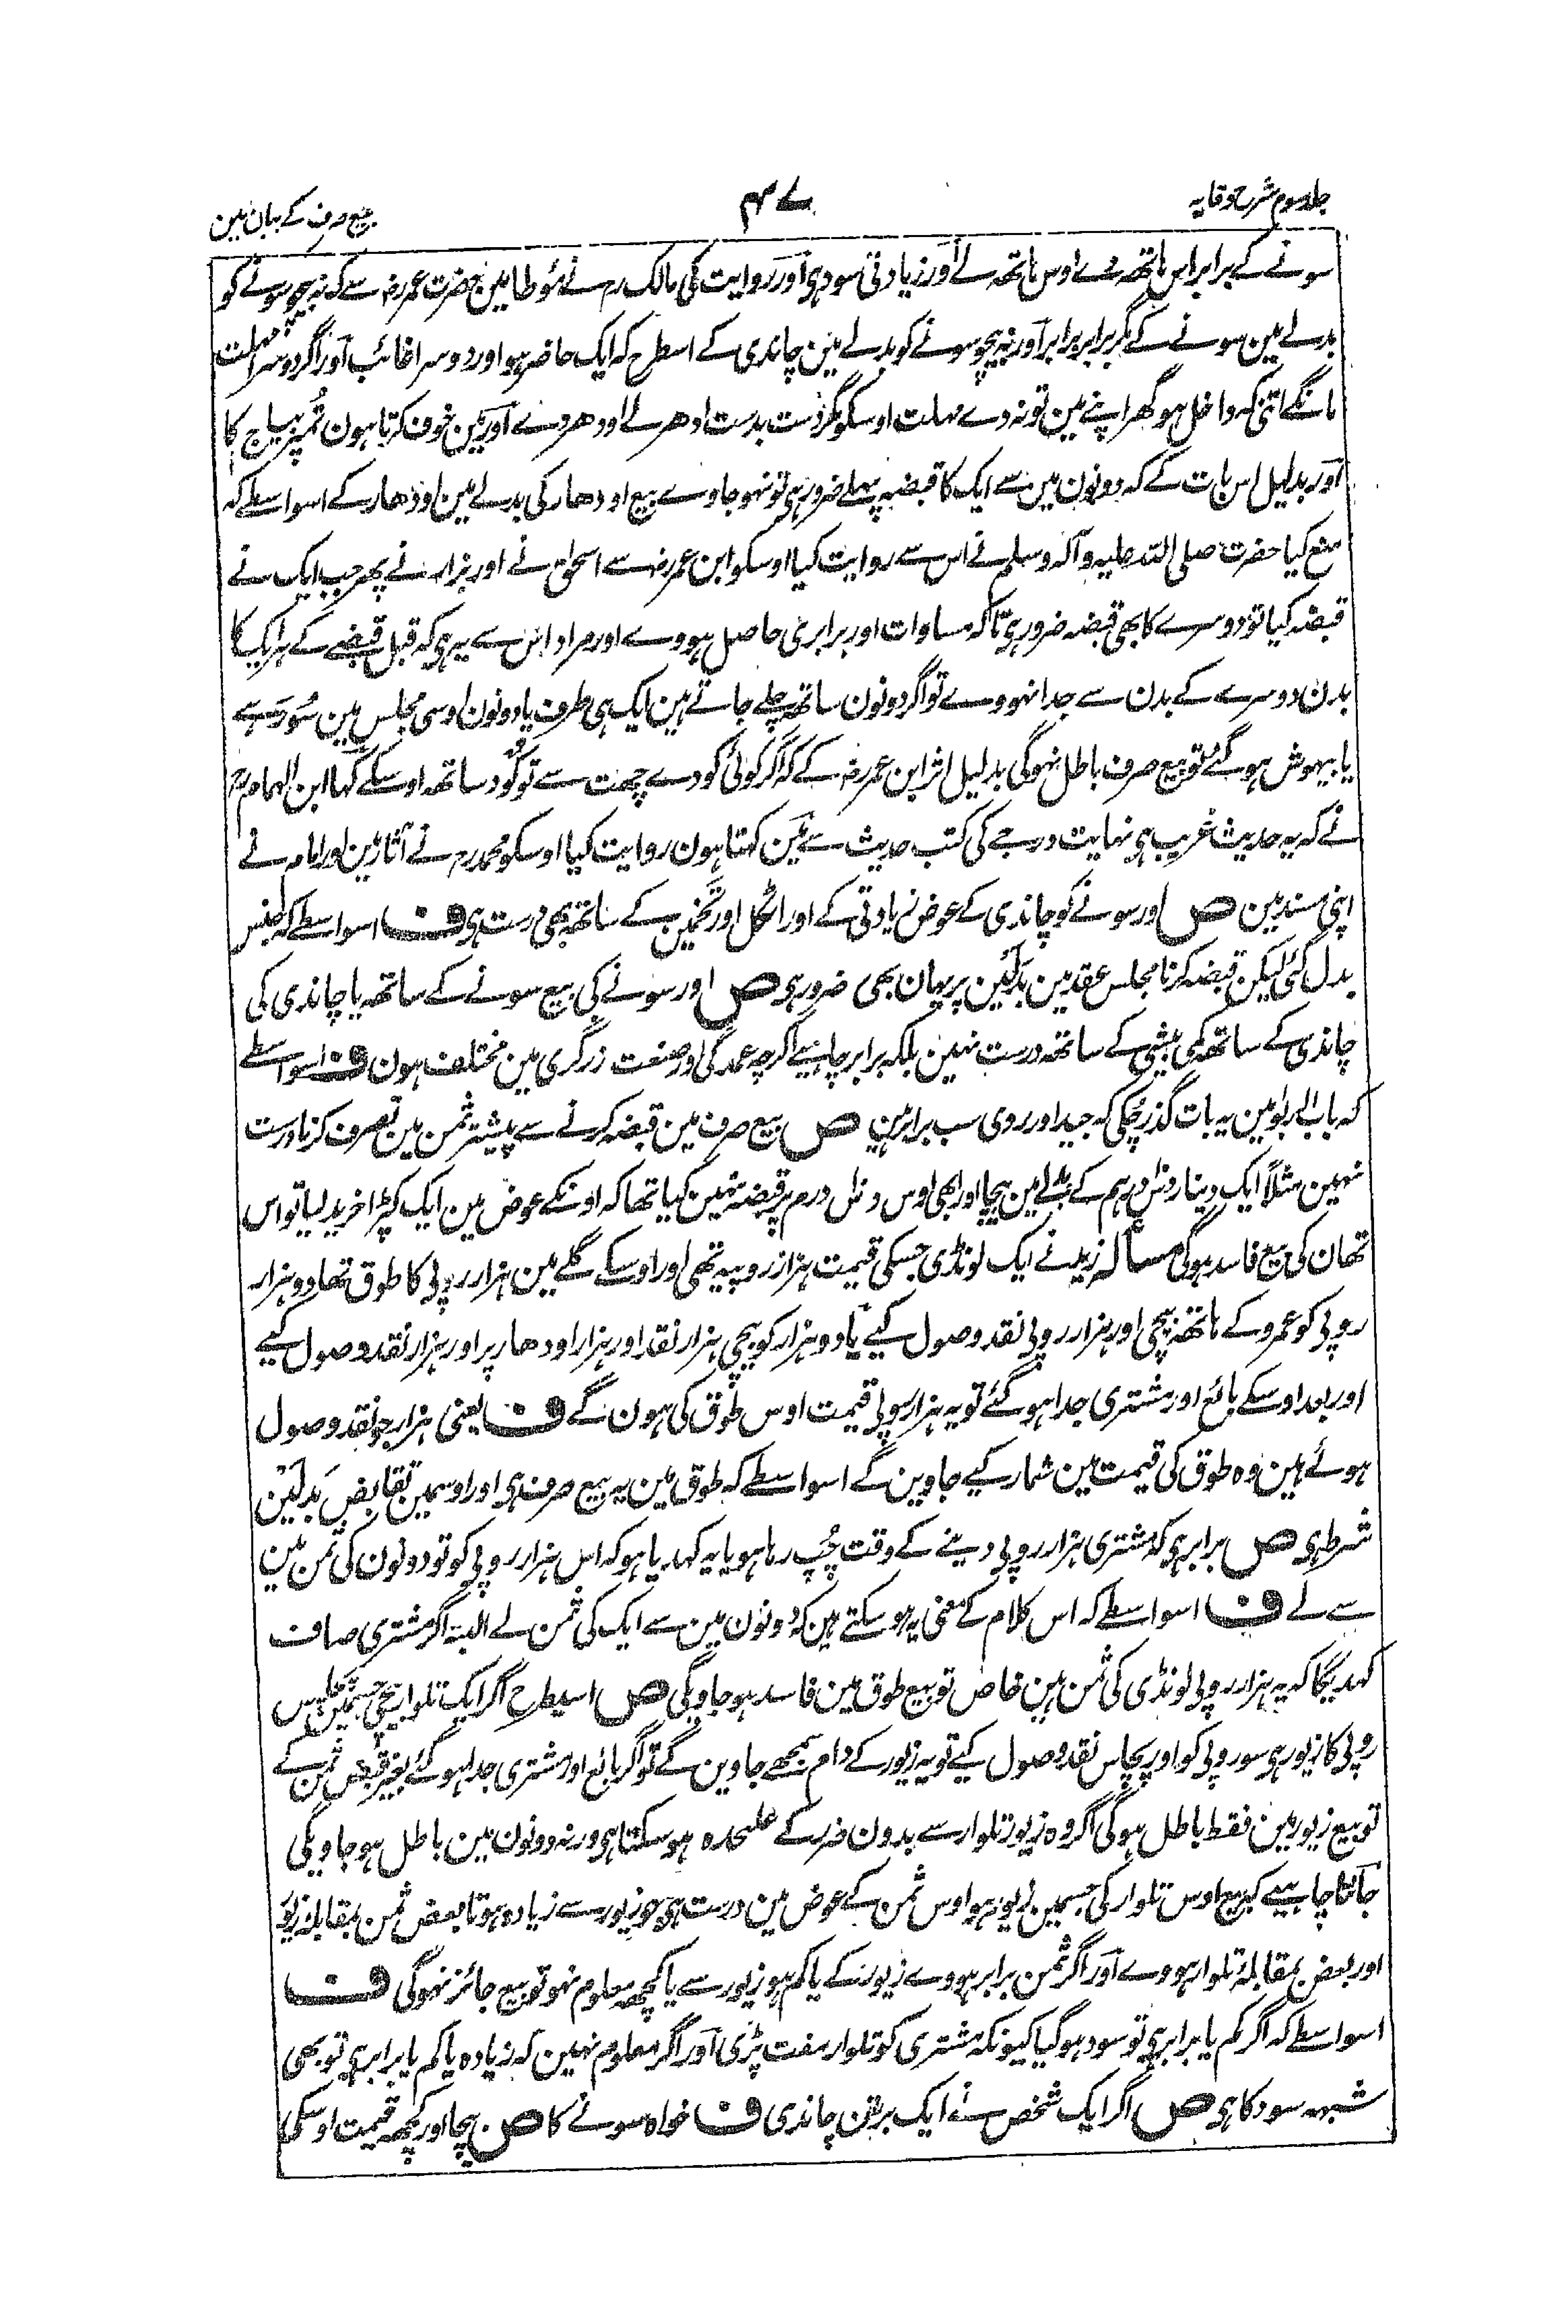 جلد سوم شرح وقایہ
۴۷
بیع صرف کے بیان مین
سونے کے برابر اس ہاتھ دے اوس ہاتھ لے اور زیادتی سود ہی اور روایت کی مالک رم نے مؤطا مین حضرت عمر رض سے کہ نہ بیچو سونے کو
بدلے مین سونے کے مگر برابر برابر اور نہ بیچو سونے کو بدلے مین چاندی کے اسطرح کہ ایک حاضر ہو اور دوسرا غائب اور اگر دوسرا مہلت
مانگے اتنی کہ داخل ہو گھر اپنے مین تو نہ دے مہلت اوسکو مگر دست بدست ادھر لے اودھر دے اور مین خوف کرتا ہون تمپر بیاج کا
اور بدلیل اس بات کے کہ دونون مین سے ایک کا قبضہ پہلے ضرور ہی تو نہو جاوے بیع اودھار کی بدلے مین اودھار کے اسواسطے کہ
منع کیا حضرت صلی اللہ علیہ وآلہ وسلم نے اس سے روایت کیا اوسکو ابن عمر رض سے اسحٰق نے اور بزار نے پھر جب ایک نے
قبضہ کیا تو دوسرے کا بھی قبضہ ضرور ہی تاکہ مساوات اور برابری حاصل ہووے اور مراد اس سے یہ ہی کہ قبل قبضے کے ہر ایک کا
بدن دوسرے کے بدن سے جدا نہووے تو اگر دونون ساتھ چلے جاتے ہین ایک ہی طرف یا دونون اوسی مجلس مین سو رہے
یا بیہوش ہو گئے تو بیع صرف باطل نہوگی بدلیل اثر ابن عمر رض کے کہ اگر کوئی کودے چھت سے تو کود ساتھ اوسکے کہا ابن الہمام رح
نے کہ یہ حدیث غریب ہی نہایت درجے کی کتب حدیث سے مین کہتا ہون روایت کیا اوسکو محمد رم نے آثار مین اور امام نے
اپنی مسند مین ص اور سونے کو چاندی کے عوض زیادتی کے اور اٹکل اور تخمین کے ساتھ بھی درست ہی ف اسواسطے کہ جنس
بدل گئی لیکن قبضہ کرنا مجلس عقد مین بدلین پر یہان بھی ضرور ہی ص اور سونے کی بیع سونے کے ساتھ یا چاندی کی
چاندی کے ساتھ کمی بیشی کے ساتھ درست نہین بلکہ برابر چاہیے اگرچہ عمدگی اور صنعت زرگری مین مختلف ہون ف اسواسطے
کہ باب الربوا مین یہ بات گذر چکی کہ جید اور ردی سب برابر ہین ص بیع صرف مین قبضہ کرنے سے پیشتر ثمن مین تصرف کرنا درست
نہین مثلاً ایک دینار دس درہم کے بدلے مین بیچا اور ابھی اوس دس درم پر قبضہ نہین کیا تھا کہ اونکے عوض مین ایک کپڑا خرید لیا تو اس
تھان کی بیع فاسد ہوگی مسألہ زید نے ایک لونڈی جسکی قیمت ہزار روپیہ تھی اور اوسکے گلے مین ہزار روپی کا طوق تھا دو ہزار
روپی کو عمرو کے ہاتھ بیچی اور ہزار روپی نقد وصول کیے یا دو ہزار کو بیچی ہزار نقد اور ہزار اودھار پر اور ہزار نقد وصول کیے
اور بعد اوسکے بائع اور مشتری جدا ہو گئے تو یہ ہزار روپی قیمت اوس طوق کی ہون گے ف یعنی ہزار جو نقد وصول
ہوئے ہین وہ طوق کی قیمت مین شمار کیے جاوین گے اسواسطے کہ طوق مین یہ بیع صرف ہی اور اوسمین تقابض بدلین
شرط ہی ص برابر ہی کہ مشتری ہزار روپی دینے کے وقت چپ رہا ہو یا یہ کہدیا ہو کہ اس ہزار روپی کو تو دونون کی ثمن مین
سے لے ف اسواسطے کہ اس کلام کے معنی یہ ہو سکتے ہین کہ دونون مین سے ایک کی ثمن لے البتہ اگر مشتری صاف
کہدیگا کہ یہ ہزار روپی لونڈی کی ثمن ہین خاص تو بیع طوق مین فاسد ہو جاویگی ص اسیطرح اگر ایک تلوار بیچی جسمین پچاس
روپی کا زیور ہی سو روپی کو اور پچاس نقد وصول کیے تو یہ زیور کے دام سمجھے جاوین گے تو اگر بائع اور مشتری جدا ہو گئے بغیر قبض ثمن کے
تو بیع زیور مین فقط باطل ہوگی اگر وہ زیور تلوار سے بدون ضرر کے علیحدہ ہو سکتا ہی ورنہ دونون مین باطل ہو جاویگی
جاننا چاہیے کہ بیع اوس تلوار کی جسمین زیور ہو اوس ثمن کے عوض مین درست ہی جو زیور سے زیادہ ہو تا بعض ثمن بمقابلہ زیور
اور بعض بمقابلہ تلوار ہووے اور اگر ثمن برابر ہووے زیور کے یا کم ہو زیور سے یا کچھ معلوم نہو تو بیع جائز نہوگی ف
اسواسطے کہ اگر کم یا برابر ہی تو سود ہو گیا کیونکہ مشتری کو تلوار مفت پڑی اور اگر معلوم نہین کہ زیادہ یا کم یا برابر ہی تو بھی
شبہہ سود کا ہی ص اگر ایک شخص نے ایک برتن چاندی ف خواہ سونے کا ص بیچا اور کچھ قیمت اوسکی